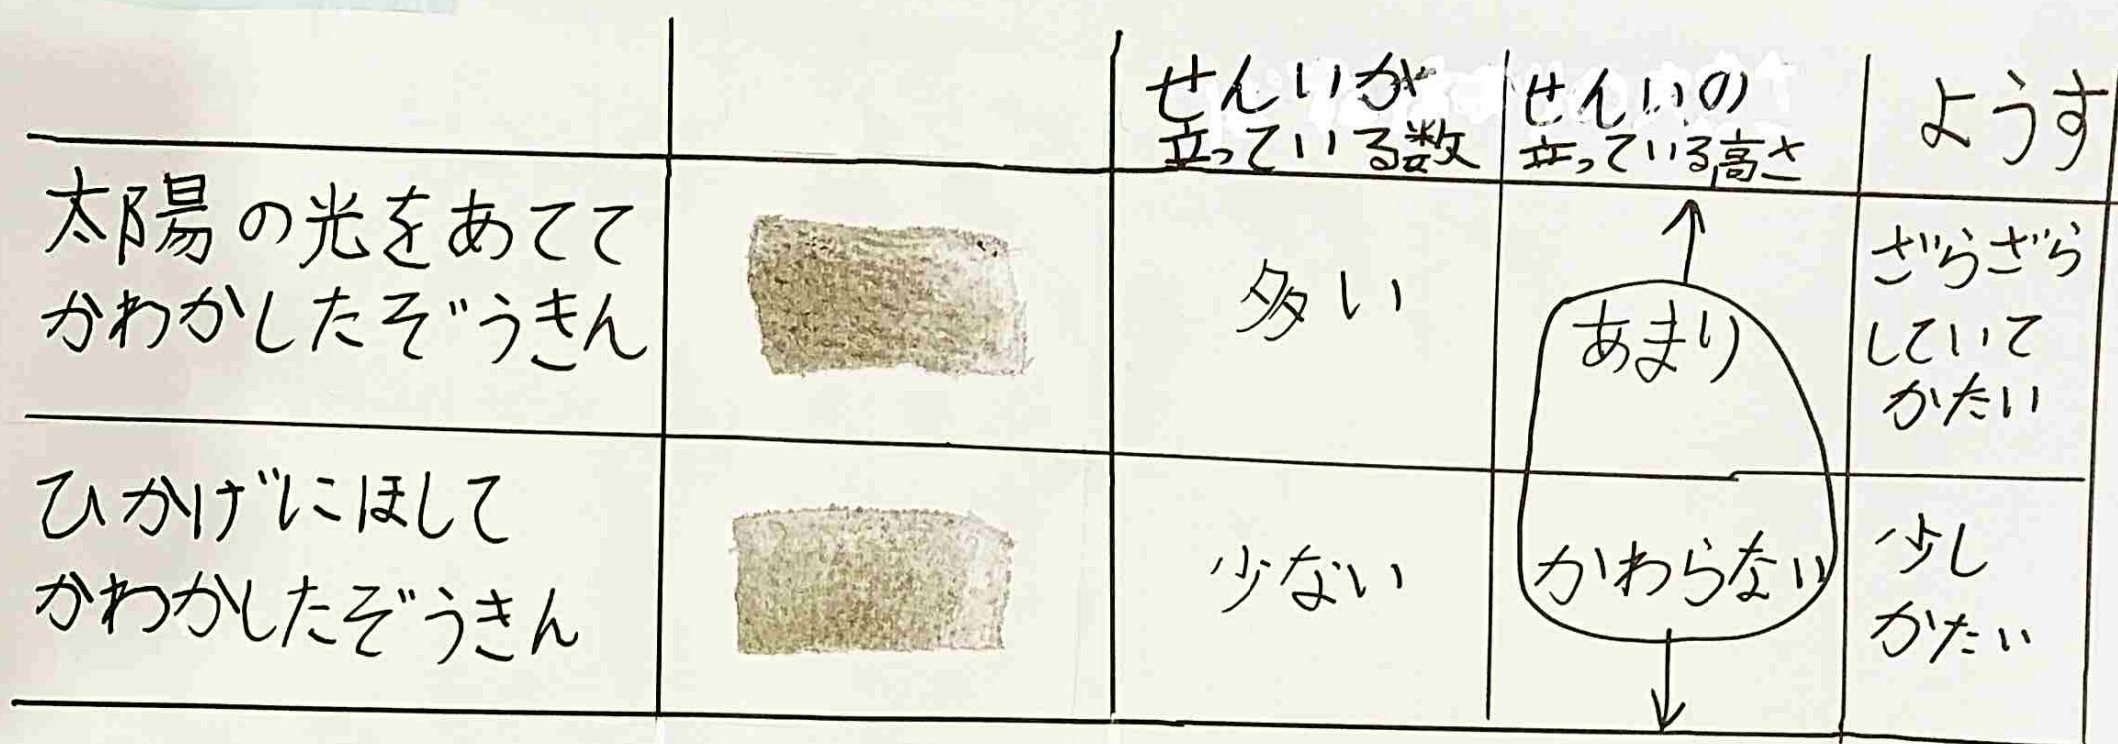 せんいが
立っている数
せんいの
立っている高さ
ようす
太陽の光をあてて
かわかしたぞうきん
多い
あまり
ざらざら
していて
かたい
ひかげにほして
かわかしたぞうきん
少ない
かわらない
少し
かたい